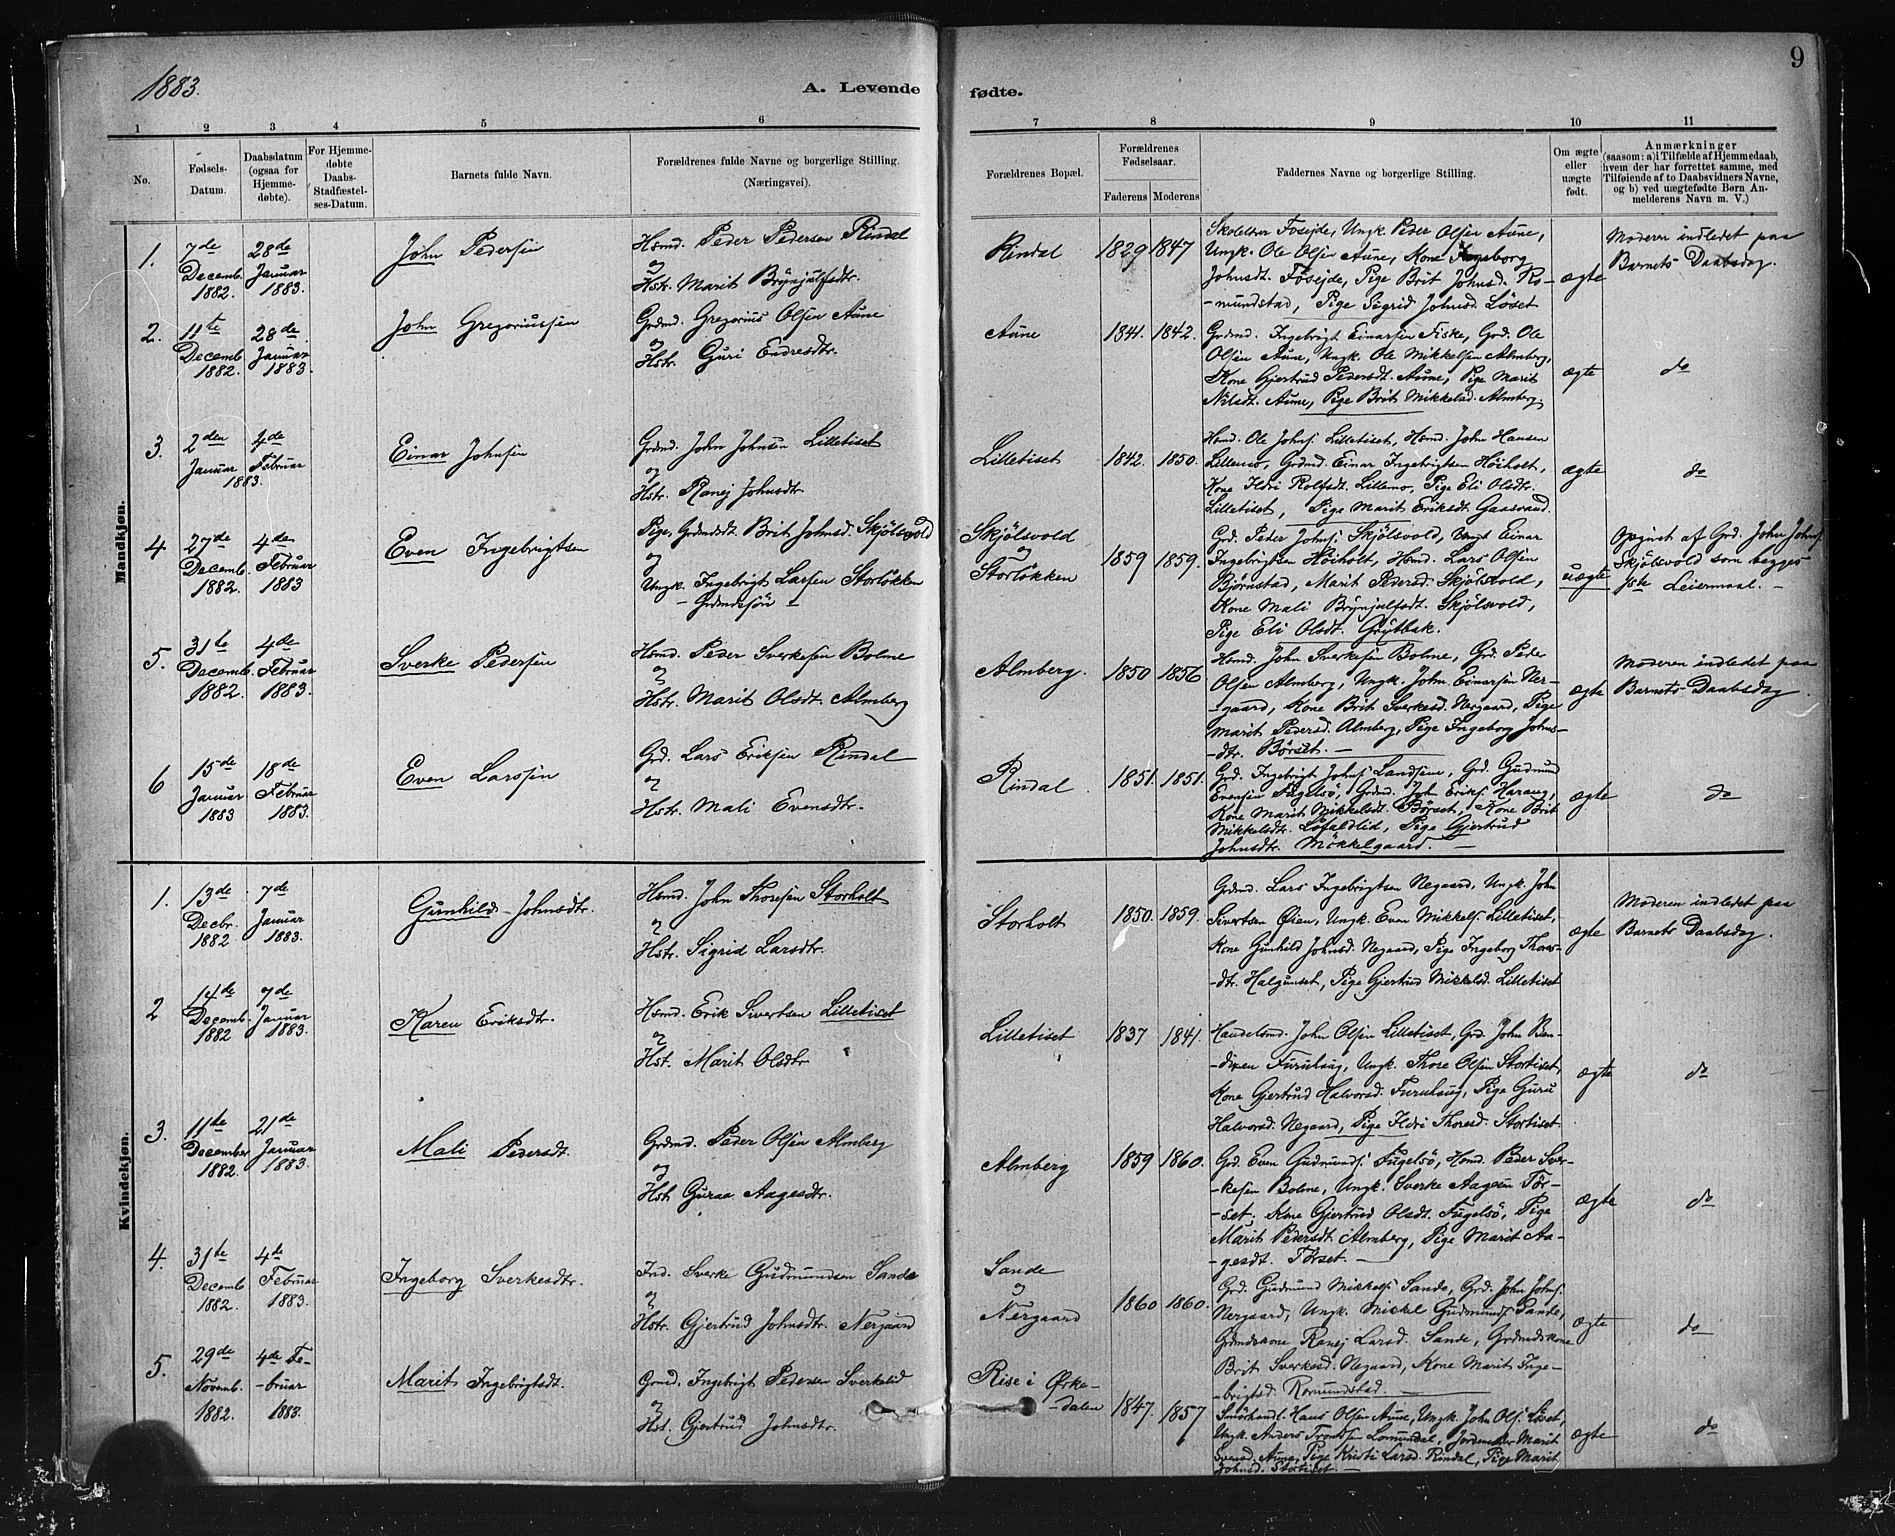 1883.
A. Levende fødte.
9
1 2 3 4 5 6 7 8 9 10 11
No.
Fødsels-Datum.
Daabsdatum (ogsaa for Hjemme-døbte).
For Hjemme-døbte Daabs-Stadfæstel-ses-Datum.
Barnets fulde Navn.
Forældrenes fulde Navne og borgerlige Stilling. (Næringsvei).
Forældrenes Bopæl.
Forældrenes Fødselsaar.
Faderens Moderens
Faddernes Navne og borgerlige Stilling.
Om ægte eller uægte født.
Anmærkninger
(saasom: a) i Tilfælde af Hjemmedaab, hvem der har forrettet samme, med Tilføiende af to Daabsvidners Navne, og b) ved uægtefødte Børn Anmelderens Navn m. V.)
Mandkjøn.
1. 7de Decemb. 1882. 28de Januar 1883. John Pedersen
Hsmd. Peder Pedersen Rindal
og
Hstr. Marit Brynjulfsdtr.
Rindal 1829 1847
Skolelærer Fosejde, Ungk. Peder Olsen Aune,
Ungk. Ole Olsen Aune, Kone Ingeborg
Johnsdt. Fosejde, Pige Brit Johnsd. Ro-
-mundstad, Pige Sigrid Johnsd. Løset
ægte
Moderen indledet paa
Barnets Daabsdag.
2. 11te Decemb. 1882. 28de Januar 1883. John Gregoriussen
Grdmd. Gregorius Olsen Aune
og
Hstr. Guri Endresdtr.
Aune 1841. 1842.
Grdmd. Ingebrigt Einarsen Fiske, Grd. Ole
Olsen Aune, Ungk. Ole Mikkelsen Almberg,
Kone Gjertrud Pedersdt. Aune, Pige Marit
Nilsdt. Aune, Pige Brit Mikkelsd. Almberg.
ægte
do
3. 2den Januar 4de Februar 1883. Einar Johnsen
Grdmd. John Johnsen Lilletiset
og
Hstr. Ranej Johnsdtr
Lilletiset 1842. 1850.
Hsmd. Ole Johns. Lilletiset, Hsmd. John Hansen
Lillemo, Grdmd. Einar Ingebrigtsen Höiholt,
Kone Ildri Rolfsdt. Lillemo, Pige Eli Olsdtr.
Lilletiset, Pige Marit Eriksdt. Gaasvand.
ægte
do
4. 27de Decemb. 1882. 4de Februar 1883 Even Ingebrigtsen
Pige, Grdmdsdt. Brit Johnsd. Skjölsvold
og
Ungk. Ingebrigt Larsen Storløkken
– Grdmdssön –
Skjølsvold
og
Storløkken
1859 1859.
Grd. Peder Johns. Skjølsvold, Ungk Einar
Ingebrigtsen Höiholt, Hsmd. Lars Olsen
Bjørnstad, Marit Pedersd. Skjølsvold,
Kone Mali Brynjulfsdt. Skjølsvold,
Pige Eli Olsdt. Grytbak.
uægte
Opgivet af Grd. John Johns.
Skjølsvold som begges
1ste Leiermaal. –
5. 31te Decemb. 1882. 4de Februar 1883. Sverke Pedersen
Hsmd. Peder Sverkesen Bolme
og
Hstr. Marit Olsdt. Almberg
Almberg. 1850 1856
Hsmd. John Sverkesen Bolme, Grd. Peder
Olsen Almberg, Ungk. John Einarsen Ner-
-gaard, Kone Brit Sverkesd. Nergaard, Pige
Marit Pedersd. Almberg, Pige Ingeborg Johns-
-dtr. Børset. –
ægte
Moderen indledet paa
Barnets Daabsdag
6 15de Januar 1883 18de Februar 1883. Even Larssen
Grd. Lars Eriksen Rindal
og
Hstr. Mali Evensdtr.
Rindal 1851. 1851.
Grd. Ingebrigt Johns. Landsem, Grd. Gudmund
Evensen Fugelsö, Grdmd. John Eriks. Harang,
Kone Marit Mikkelsdt. Børset, Kone Brit
Mikkelsdtr. Löfaldlid, Pige Gjertrud
Johnsdtr. Møkkelgaard. –
ægte
do
Kvindekjøn.
1. 13de Decbr. 1882 7de Januar 1883. Gunhild Johnsdtr.
Hsmd. John Thoresen Storholt
og
Hstr. Sigrid Larsdtr.
Storholt 1850. 1859.
Grdmd. Lars Ingebrigtsen Negaard, Ungk. John
Sivertsen Øien, Ungk. Even Mikkels. Lilletiset,
Kone Gunhild Johnsd. Negaard, Pige Ingeborg Thores-
dtr. Halgunset, Pige Gjertrud Mikkelsd. Lilletiset
ægte
Moderen indledet paa
Barnets Daabsdag.
2 14de Decemb. 1882 7de Januar 1883. Karen Eriksdtr.
Hsmd. Erik Sivertsen Lilletiset
og
Hst. Marit Olsdtr
Lilletiset 1837 1841.
Handelsmd. John Olsen Lilletiset, Grd. John Ben-
-dixen Furuhaug, Ungk. Thore Olsen Stortiset,
Kone Gjertrud Halvorsd. Furuhaug, Pige Guru
Halvorsd. Negaard, Pige Ildri Thoresd. Stortiset
ægte
do
3. 11te December 1882. 21de Januar 1883. Mali Pedersdt.
Grdmd. Peder Olsen Almberg
og
Hst. Guraa Aagesdtr.
Almberg 1859 1860.
Grd. Even Gudmunds. Fugelsö, Hsmd. Peder Sver-
-kesen Bolme, Ungk. Sverke Aagsen Tör-
-set. Kone Gjertrud Olsdt. Fugelsö, Pige
Marit Pedersdt Almberg, Pige Marit Aa-
-gesdt. Törset. –
ægte
do
4. 31te Decemb. 1882. 4de Februar 1883. Ingeborg Sverkesdtr.
Ind. Sverke Gudmundsen Sande
og
Hstr. Gjertrud Johnsdtr. Nergaard
Sande
og
Nergaard
1860 1860.
Grd. Gudmund Mikkels. Sande, Grd. John Johns.
Nergaard, Ungk. Mikkel Gudmunds. Sande,
Grdmdskone Ranej Larsd. Sande, Grdmdskone
Brit Sverkesd. Negaard, Kone Marit Inge-
-brigtsd. Romundstad. –
ægte
do
5. 29de Novemb. 1882. 4de Fe-bruar 1883. Marit Ingebrigtsdt.
Grmd. Ingebrigt Pedersen Sverkelid
og
Hst. Gjertrud Johnsdtr.
Rise i Ørke-
-dalen
1847. 1857
Smörhandl. Hans Olsen Aune, Ungk. John Ols. Løset,
Ungk. Anders Tronsen Lomundal, Jordemoder Marit
Svensd. Aune, Pige Kristi Larsd. Rindal, Pige Marit
Johnsd. Stortiset. –
ægte
do